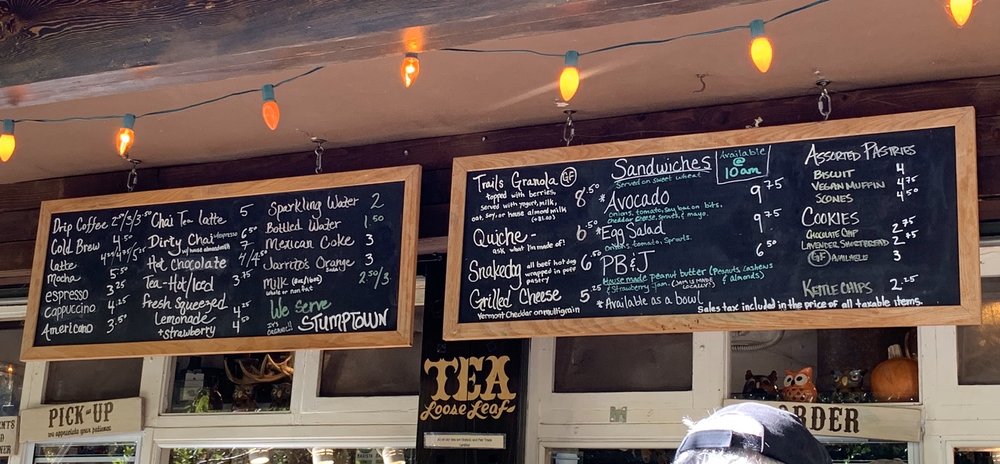 Drip Coffee 2.50/3/3.50
Cold Brew 4.50
Latte
Mocha 5.50
espresso 3.25
cappuccino 4.25
Americano 3.50
Chai Tea latte 5
Dirty Chai 6.50
w/house almond milk
Hot Chocolate
Tea-Hot/Iced 3.75
Fresh Squeezed
Lemonade 4
+strawberry 4.50
Sparkling Water 2
Bottled Water 1.50
Mexican Coke 3
Jarritos Orange 3
Soda
Milk 2.50/3
Whole or nonfat
We Serve
It's organic!!
STUMPTOWN
Trails Granola GF 8.50
topped with berries,
served with yogurt, milk,
oat, soy, or house almond milk
(+$1.00)
Quiche- 6.50
ask what I'm made of!
Snakedog 6.50
all beef hot dog
wrapped in puff
pastry
Grilled Cheese 5.25
Vermont Cheddar on multigrain
Sandwiches
Served on sweet wheat
Available
@
10am
*Avocado 9.75
onions, tomato, soy bacon bits,
cheddar cheese, sprouts, mayo.
*Egg Salad 9.75
onions, tomato, sprouts.
PB&J 6.50
House made Peanut butter (Peanuts, cashews
& almonds)
Strawberry Jam (Jam is made
locally!)
*Available as a bowl
Assorted Pastries
Biscuit 4
Vegan Muffin 4.75
Scones 4.50
Cookies
Chocolate Chip 2.75
Lavender Shortbread 2
GF Available 3.25
Kettle Chips 2.25
Sales tax included in the price of all taxable items.
PICK-UP
we appreciate your patience
TEA
Loose Leaf
ORDER